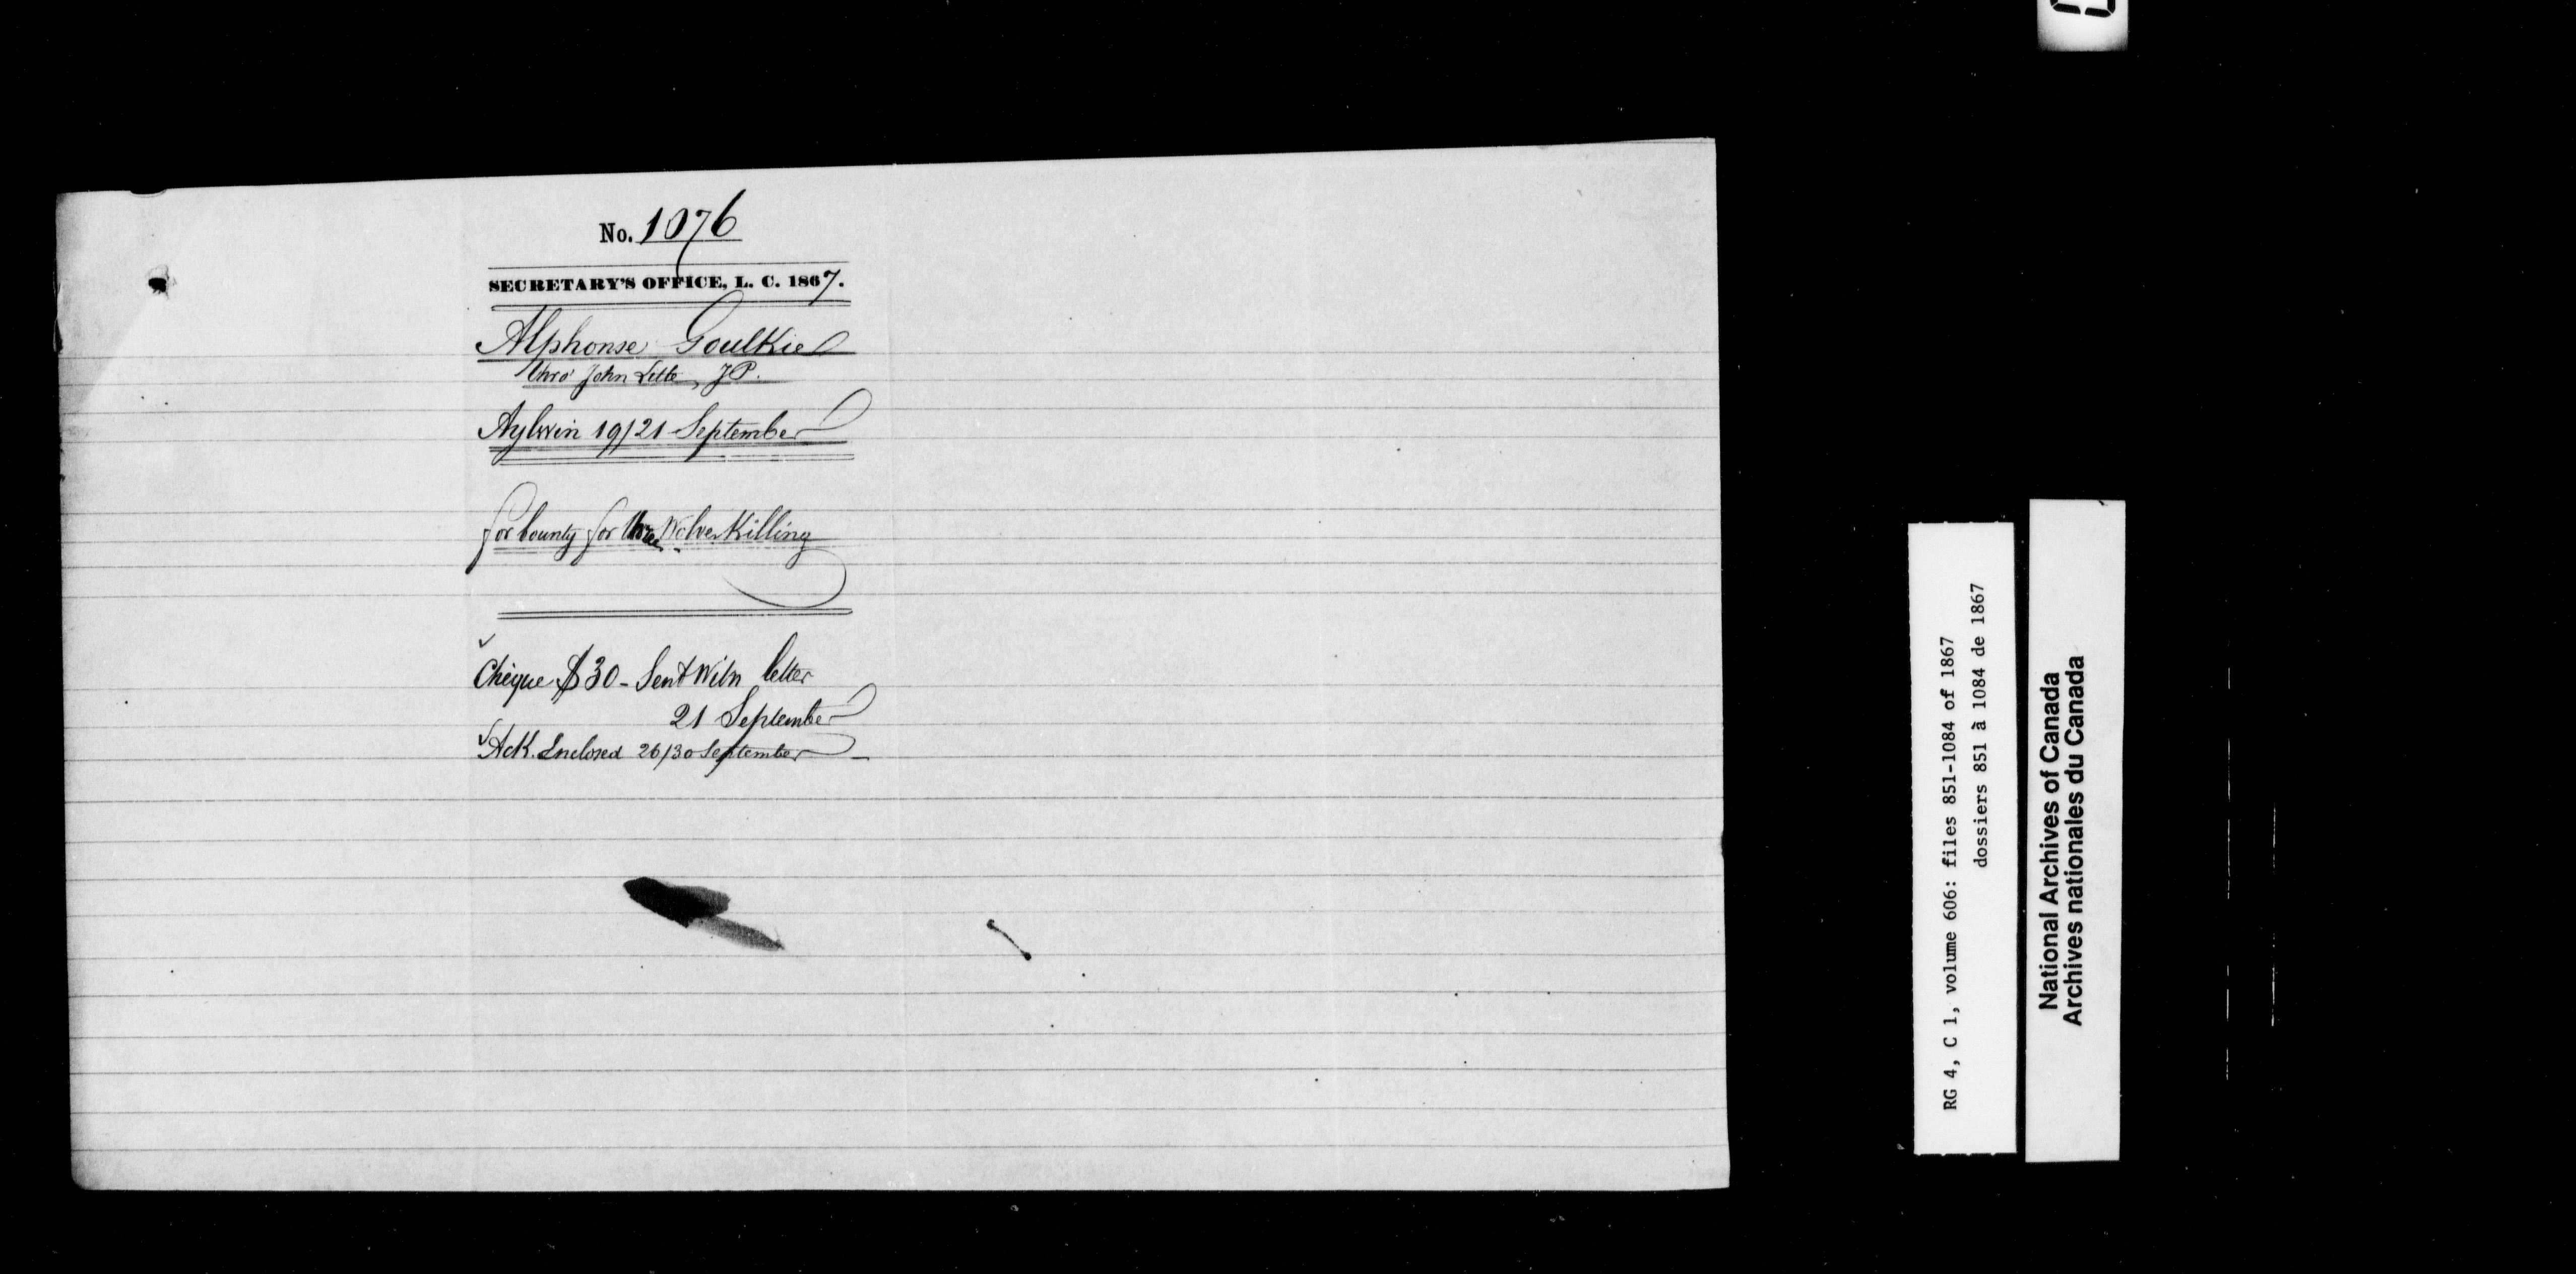 No. 1076
SECRETARY'S OFFICE, L. C. 1867.
Alphonse Goulkie
thro' John Lette, J.P.
Aylwin 19/21 September
for bounty for three Wolves Killing
Cheque $30 - Sent with letter
21 September
Ack. Enclosed 26/30 September
RG 4, C 1, volume 606: files 851-1084 of 1867
dossiers 851 à 1084 de 1867
National Archives of Canada
Archives nationales du Canada